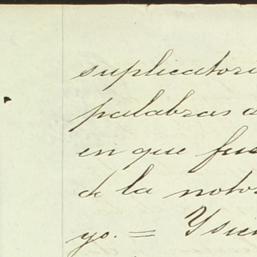 suplicatori
palabras a
en que fue
de la noto
yo. = Y sien